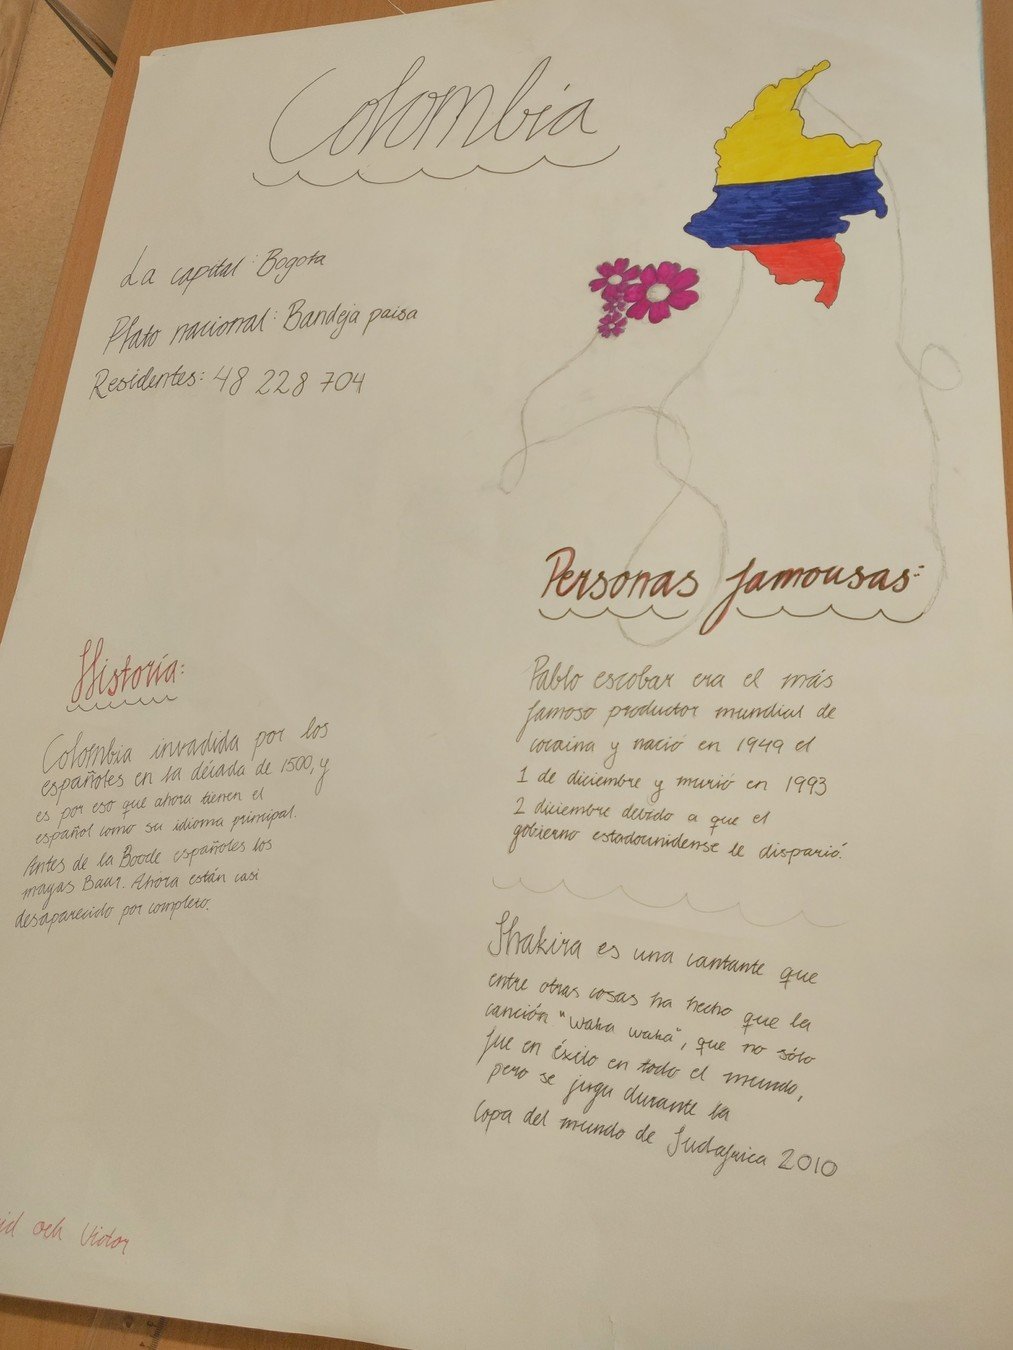 Colombia
La capital: Bogota
Plato nacional: Bandeja paisa
Residentes: 48 228 704
Historia:
Colombia invadida por los
españoles en la década de 1500, y
es por eso que ahora tienen el
español como su idioma principal.
Antes de la Boode españoles los
mayas Baar. Ahora están casi
desaparecido por completo.
Personas famousas:
Pablo escobar era el más
famoso productor mundial de
cocaina y nació en 1949 el
1 de diciembre y murió en 1993
2 diciembre debido a que el
gobierno estadounidense le disparió.
Shakira es una cantante que
entre otras cosas ha hecho que la
canción "waka waka", que no sólo
fue en éxito en todo el mundo,
pero se jugu durante la
Copa del mundo de Sudafrica 2010
och Victor